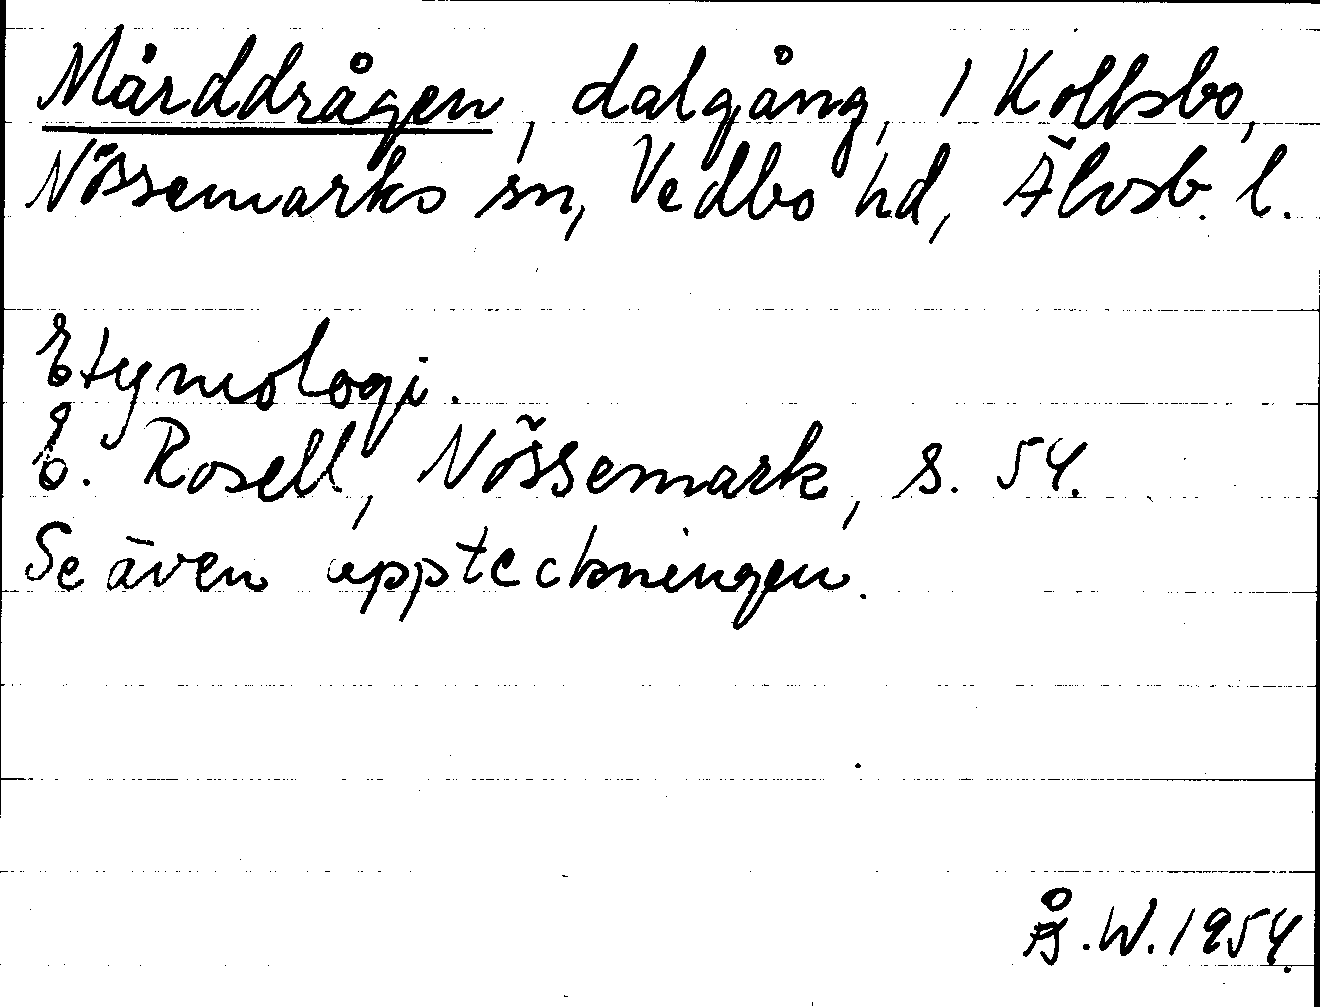 Mårddrågen, dalgång, 1 Kollsbo,
Nössemarks sn, Vedbo hd, Älvsb. l.
Etymologi.
E. Rosell, Nössemark, s. 54.
Se även uppteckningen.
Å.W. 1954.